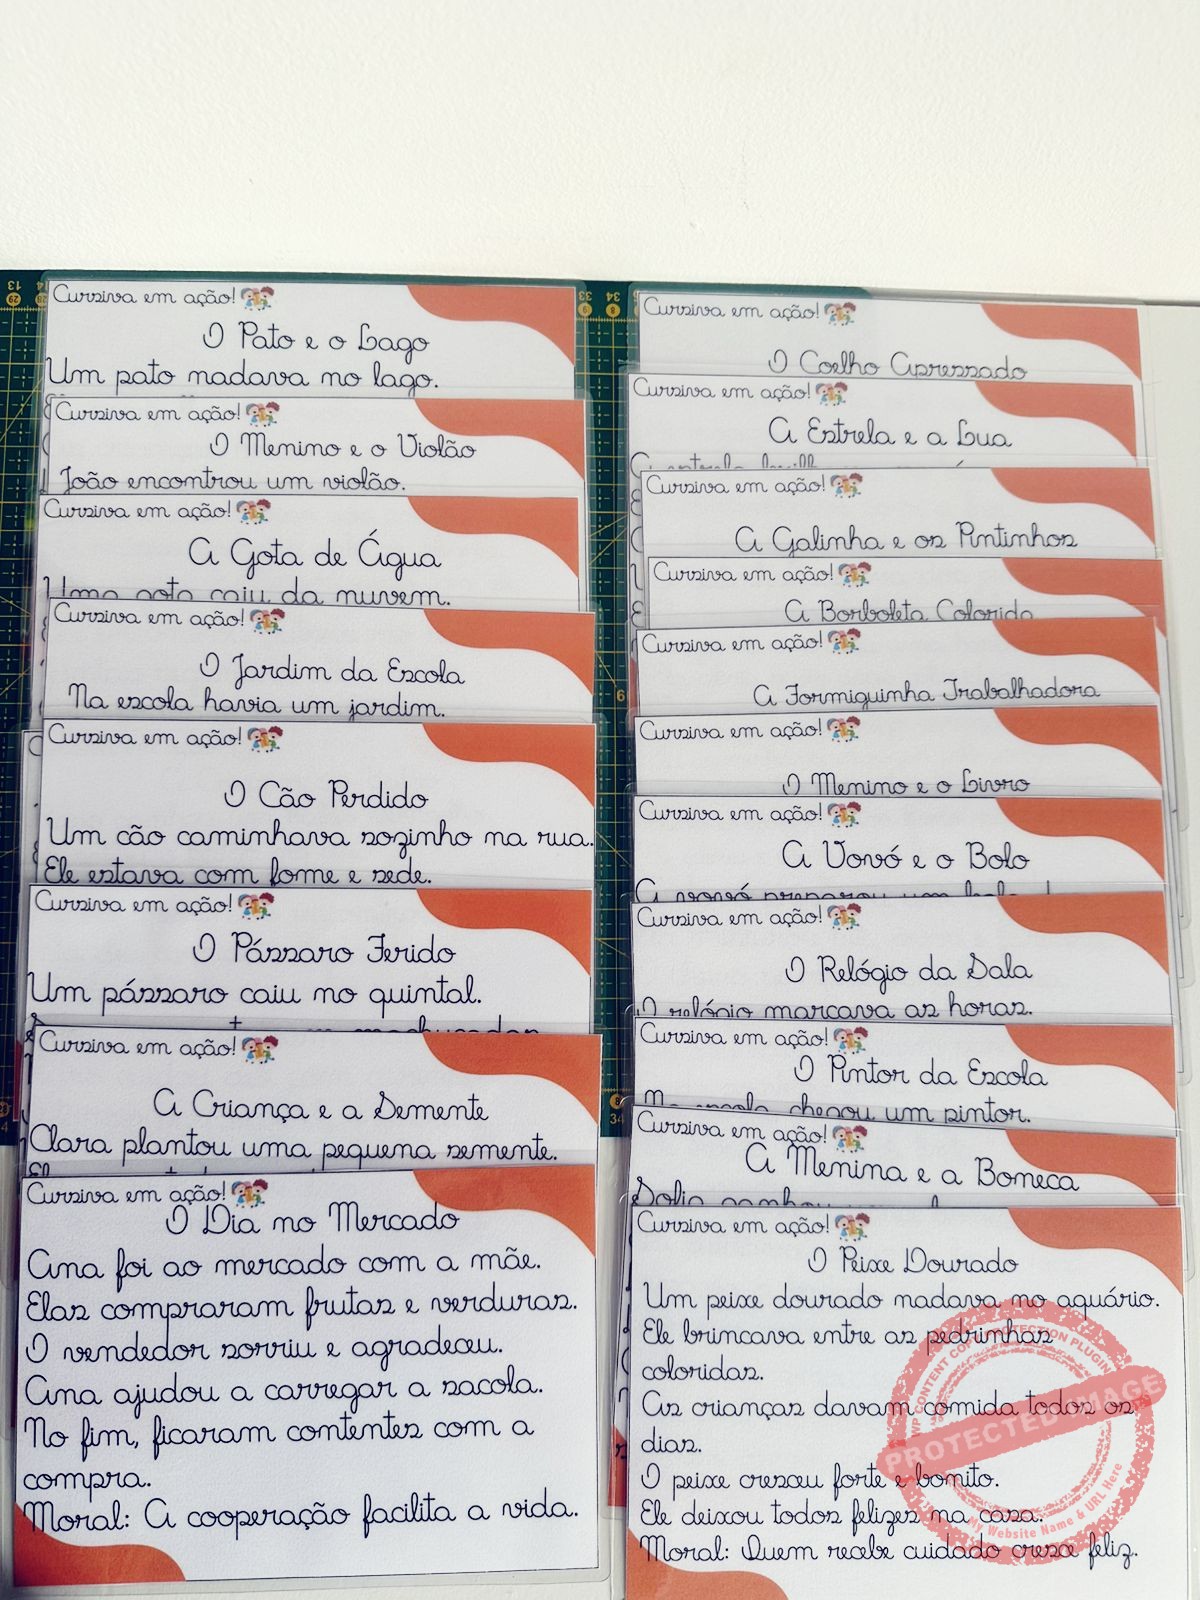 Cursiva em ação!
O Pato e o Lago
Um pato nadava no lago.
Cursiva em ação!
O Menino e o Violão
João encontrou um violão.
Cursiva em ação!
A Gota de Água
Uma gota caiu da nuvem.
Cursiva em ação!
O Jardim da Escola
Na escola havia um jardim.
Cursiva em ação!
O Cão Perdido
Um cão caminhava sozinho na rua.
Ele estava com fome e sede.
Cursiva em ação!
O Pássaro Ferido
Um pássaro caiu no quintal.
Cursiva em ação!
A Criança e a Semente
Clara plantou uma pequena semente.
Cursiva em ação!
O Dia no Mercado
Ana foi ao mercado com a mãe.
Elas compraram frutas e verduras.
O vendedor sorriu e agradeceu.
Ana ajudou a carregar a sacola.
No fim, ficaram contentes com a
compra.
Moral: A cooperação facilita a vida.
Cursiva em ação!
O Coelho Apressado
Cursiva em ação!
A Estrela e a Lua
Cursiva em ação!
A Galinha e os Pintinhos
Cursiva em ação!
A Borboleta Colorida
Cursiva em ação!
A Formiguinha Trabalhadora
Cursiva em ação!
O Menino e o Livro
Cursiva em ação!
A Vovó e o Bolo
A vovó preparou um
Cursiva em ação!
O Relógio da Sala
O relógio marcava as horas.
Cursiva em ação!
O Pintor da Escola
Na escola chegou um pintor.
Cursiva em ação!
A Menina e a Boneca
Cursiva em ação!
O Peixe Dourado
Um peixe dourado nadava no aquário.
Ele brincava entre as pedrinhas
coloridas.
As crianças davam comida todos os
dias.
O peixe cresceu forte e bonito.
Ele deixou todos felizes na casa.
Moral: Quem recebe cuidado cresce feliz.
WP CONTENT COPY PROTECTION PLUGIN
PROTECTED IMAGE
My Website Name & URL Here